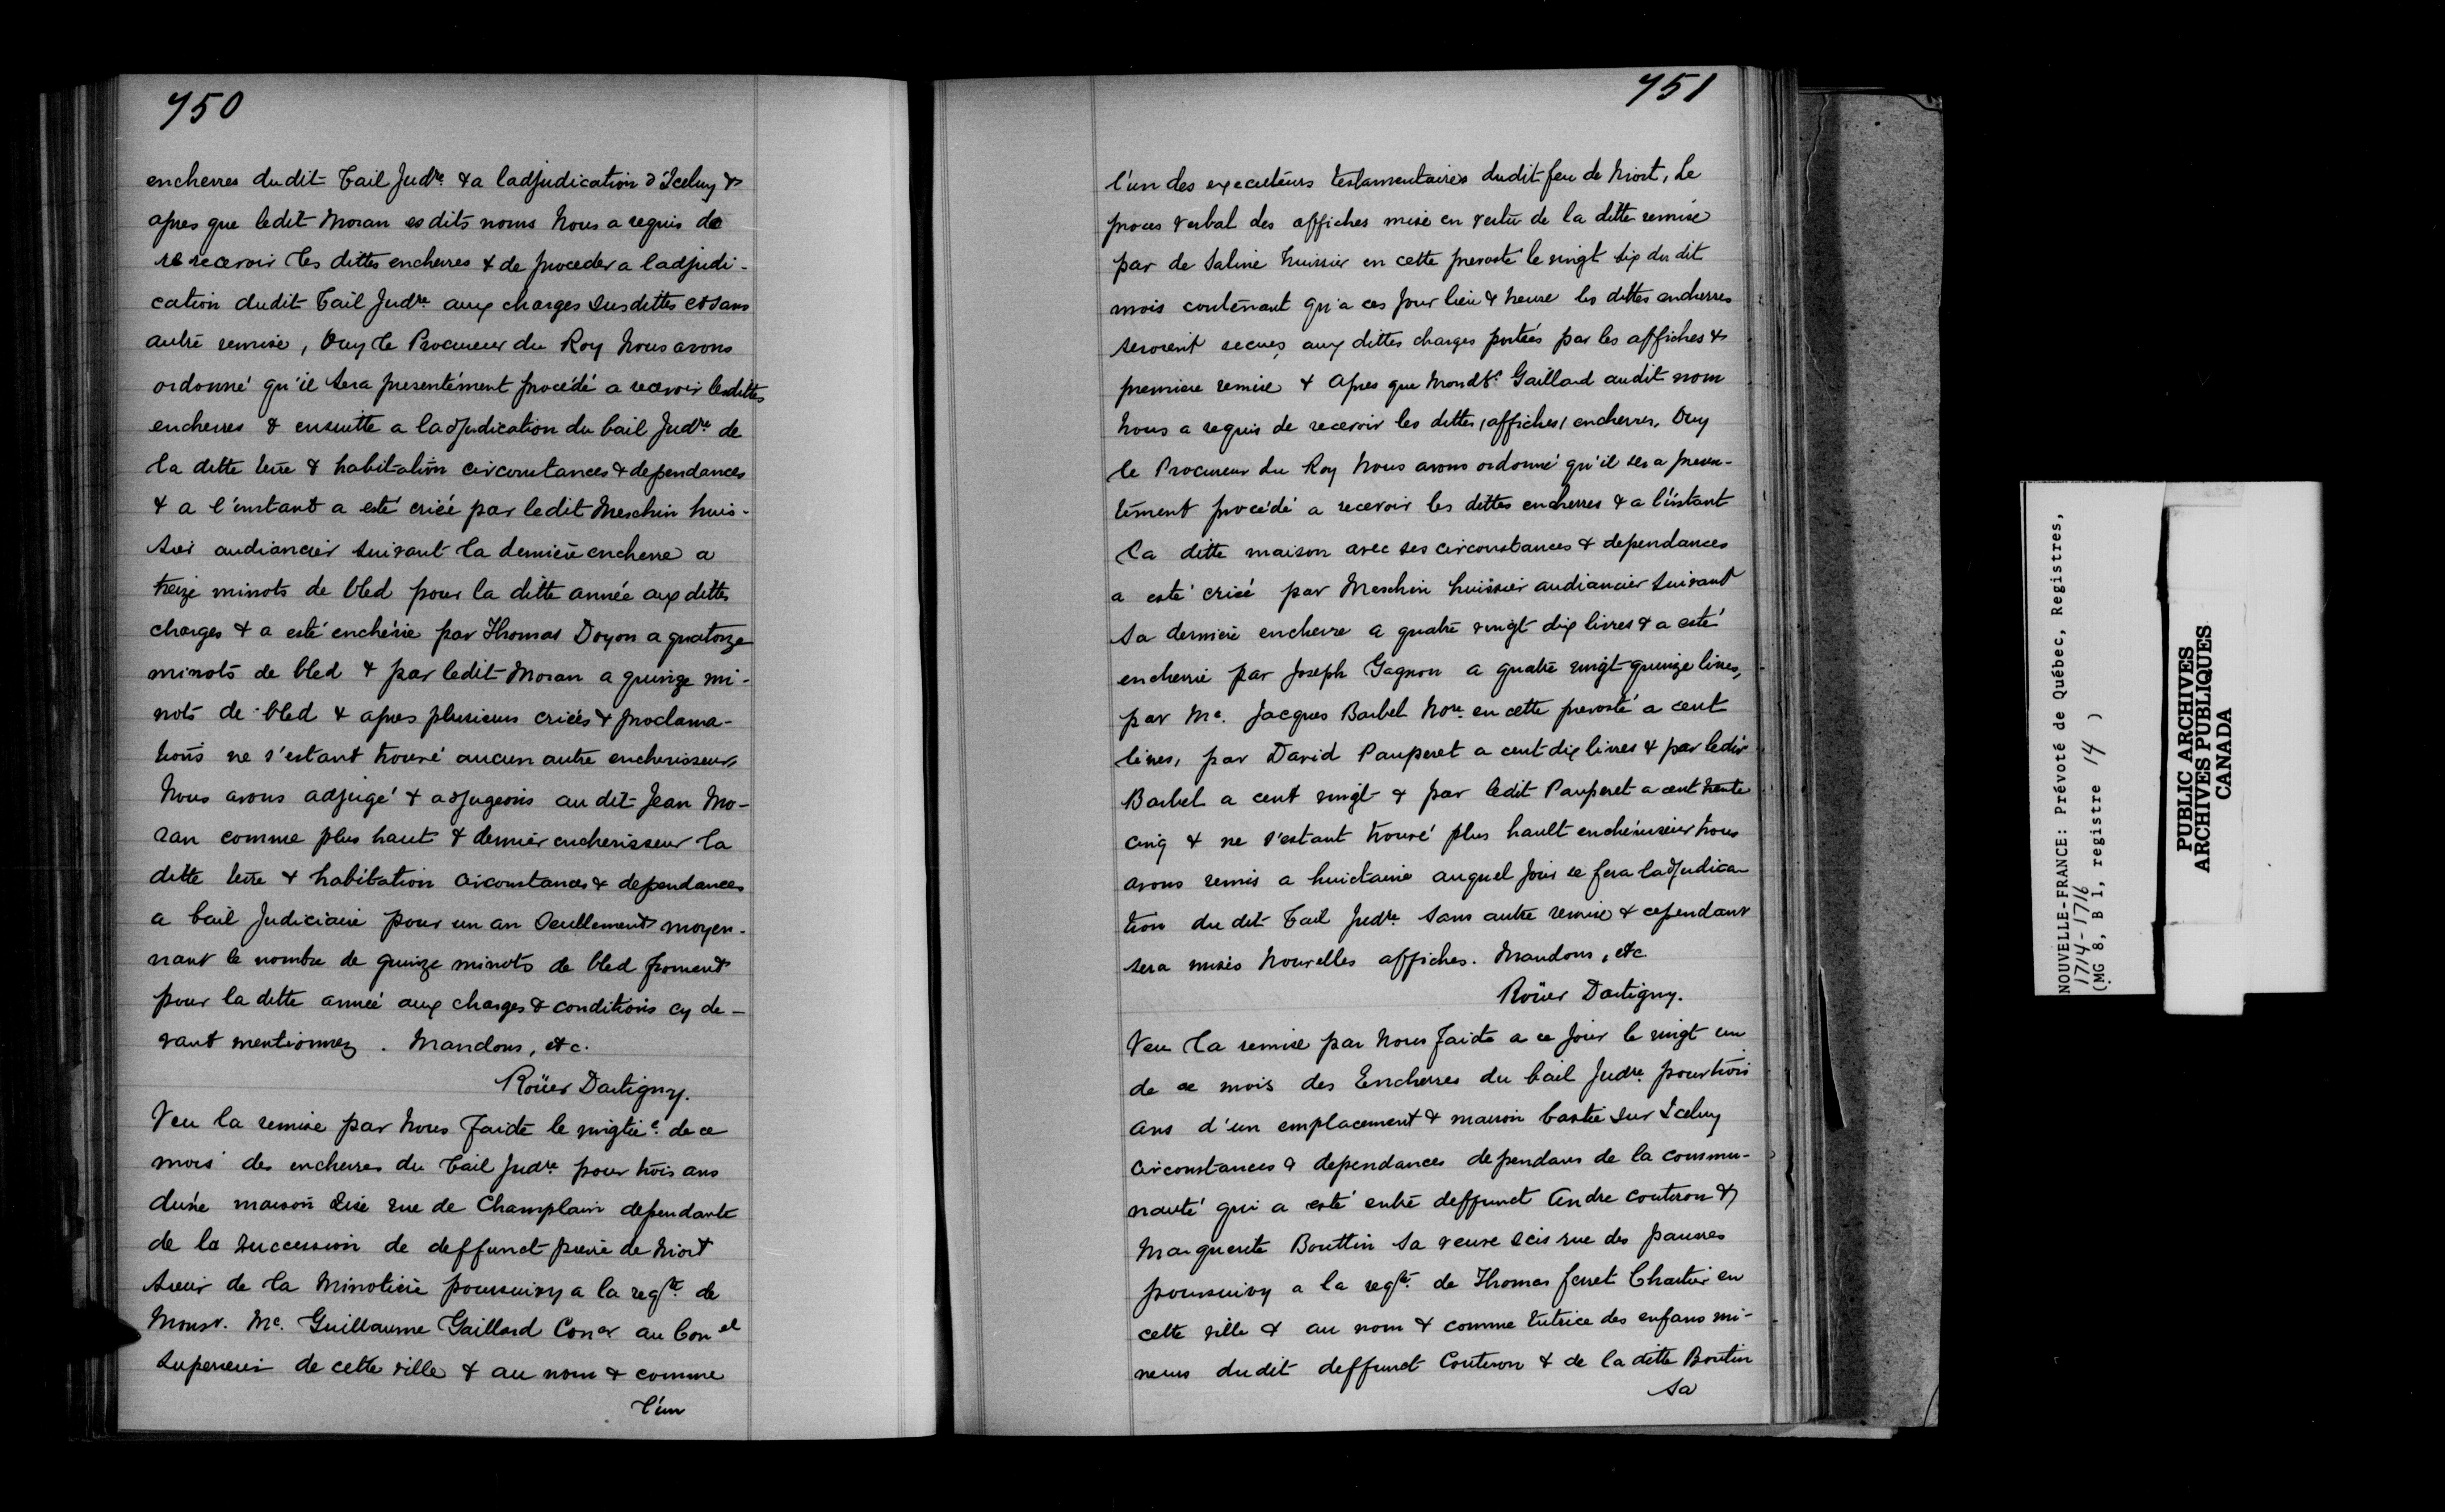 750
encherres du dit bail Judre. & a ladjudication d'Iceluy &
apres que ledit Moran es dits noms Nous a requis de
re recevoir les dittes encherres & de proceder a ladjudi-
cation dudit bail Judre aux charges susdittes et sans
autre remise, Ouy le Procureur du Roy Nous avons
ordonné qu'il sera presentément procédé a recevoir lesdittes
encherres & ensuitte a ladjudication du bail Judre de
la ditte terre & habitation circonstances & dependances
& a l'instant a esté criée par ledit Meschin huis-
sier audiancier suivant la derniere encherre a
treize minots de bled pour la ditte année aux dittes
charges & a esté enchérie par Thomas Doyon a quatorze
minots de bled & par ledit Moran a quinze mi-
nots de bled & apres plusieurs criées & proclama-
tions ne s'estant trouvé aucun autre encherisseur,
Nous avons adjugé & adjugeons au dit Jean Mo-
ran comme plus haut & dernier encherisseur la
ditte terre & habitation circonstances & dependances
a bail Judiciaire pour un an Seullement moyen-
nant le nombre de quinze minots de bled froment
pour la ditte année aux charges & conditions cy de-
vant mentionnez. Mandons, etc.
Roüer Dartigny.
Veu la remise par Nous faite le vingtie. de ce
mois des encherres du bail Judre pour trois ans
d'une maison size rue de Champlain dependante
de la succession de deffunct pierre de Niort
sieur de la Minotiere poursuivy a la reqte. de
Monsr. Me. Guillaume Gaillard Coner au Conel
superieur de cette ville & au nom & comme
l'un
751
l'un des executeurs testamentaires dudit feu de Niort, Le
proces verbal des affiches mise en vertu de la ditte remise
par de Saline huissier en cette prevosté le vingt six du dit
mois contenant qu'a ces jour lieu & heure les dittes encherres
seroient receues aux dittes charges portées par les affiches &
premiere remise & Apres que mondt. Gaillard audit nom
Nous a requis de recevoir les dittes (affiches) encherres, Ouy
le Procureur du Roy Nous avons ordonné qu'il sera presen-
tément procédé a recevoir les dittes encherres & a l'instant
la ditte maison avec ses circonstances & dependances
a esté criée par Meschin huissier audiancier suivant
sa derniere encherre a quatre vingt dix livres & a esté
encherrie par Joseph Gagnon a quatre vingt quinze livres,
par Me. Jacques Barbel Nore. en cette prevosté a cent
livres, par David Pauperet a cent dix livres & par ledit
Barbel a cent vingt & par ledit Pauperet a cent trente
cinq & ne s'estant trouvé plus hault enchérisseur Nous
avons remis a huictaine auquel jour se fera ladjudica-
tion du dit bail Judre sans autre remise & cependant
sera mises Nouvelles affiches. Mandons, etc
Roüer Dartigny.
Veu la remise par Nous faite a ce jour le vingt un
de ce mois des Encherres du bail Judre pour trois
ans d'un emplacement & maison bastie sur Iceluy
circonstances & dependances dependans de la commu-
nauté qui a esté entre deffunct Andre Couteron &
Marguerite Bouttin sa veuve scis rue des pauvres
poursuivy a la reqte. de Thomas ferret Chartier en
cette ville & au nom & comme tutrice des enfans mi-
neurs dudit deffunct Couteron & de la ditte Boutin
sa
NOUVELLE-FRANCE: Prévoté de Québec, Registres,
1714-1716
(MG 8, B 1, registre 14 )
PUBLIC ARCHIVES
ARCHIVES PUBLIQUES
CANADA